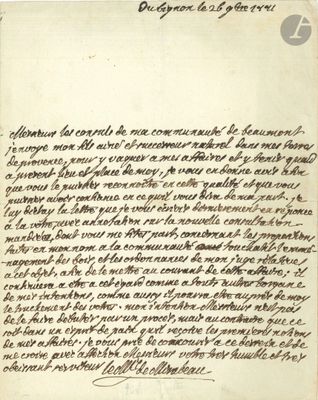 Du bignon le 26 9bre 1771
Messieurs les consuls de ma communauté de beaumont
j'envoye mon fils ainé et successeur naturel dans mes terres
de provence, pour y vaquer a mes affaires et y tenir quand
a present lieu et place de moy, je vous en donne avis afin
que vous le puissiés reconnoitre en cette qualité et que vous
puissiés avoir confiance en ce qu'il vous dira de ma part. je
luy dis la lettre que je vous écrivis dernierement en réponse
a la votre avec annotation sur la nouvelle consultation
mandiée, dont vous me fites part, concernant les propositions
faites en mon nom a la communauté touchant l'amé
nagement des bois, et les ordonnances de mon juge relatives
a cet objet, afin de le mettre au courant de cette affaire; il
continuera a être a cet égard comme a touts autres l'organe
de mes intentions, comme aussy il pourra etre auprès de moy
le truchement des votres. mon intention Messieurs n'est pas
de le faire debuter par un procès, mais au contraire que ce
soit dans un esprit de paix qu'il reçoive les premieres notions
de mes affaires. je vous prie de concourir a ce dessein et de
me croire avec affection Messieurs votre tres humble et tres
obeissant serviteur le Mis de Mirabeau